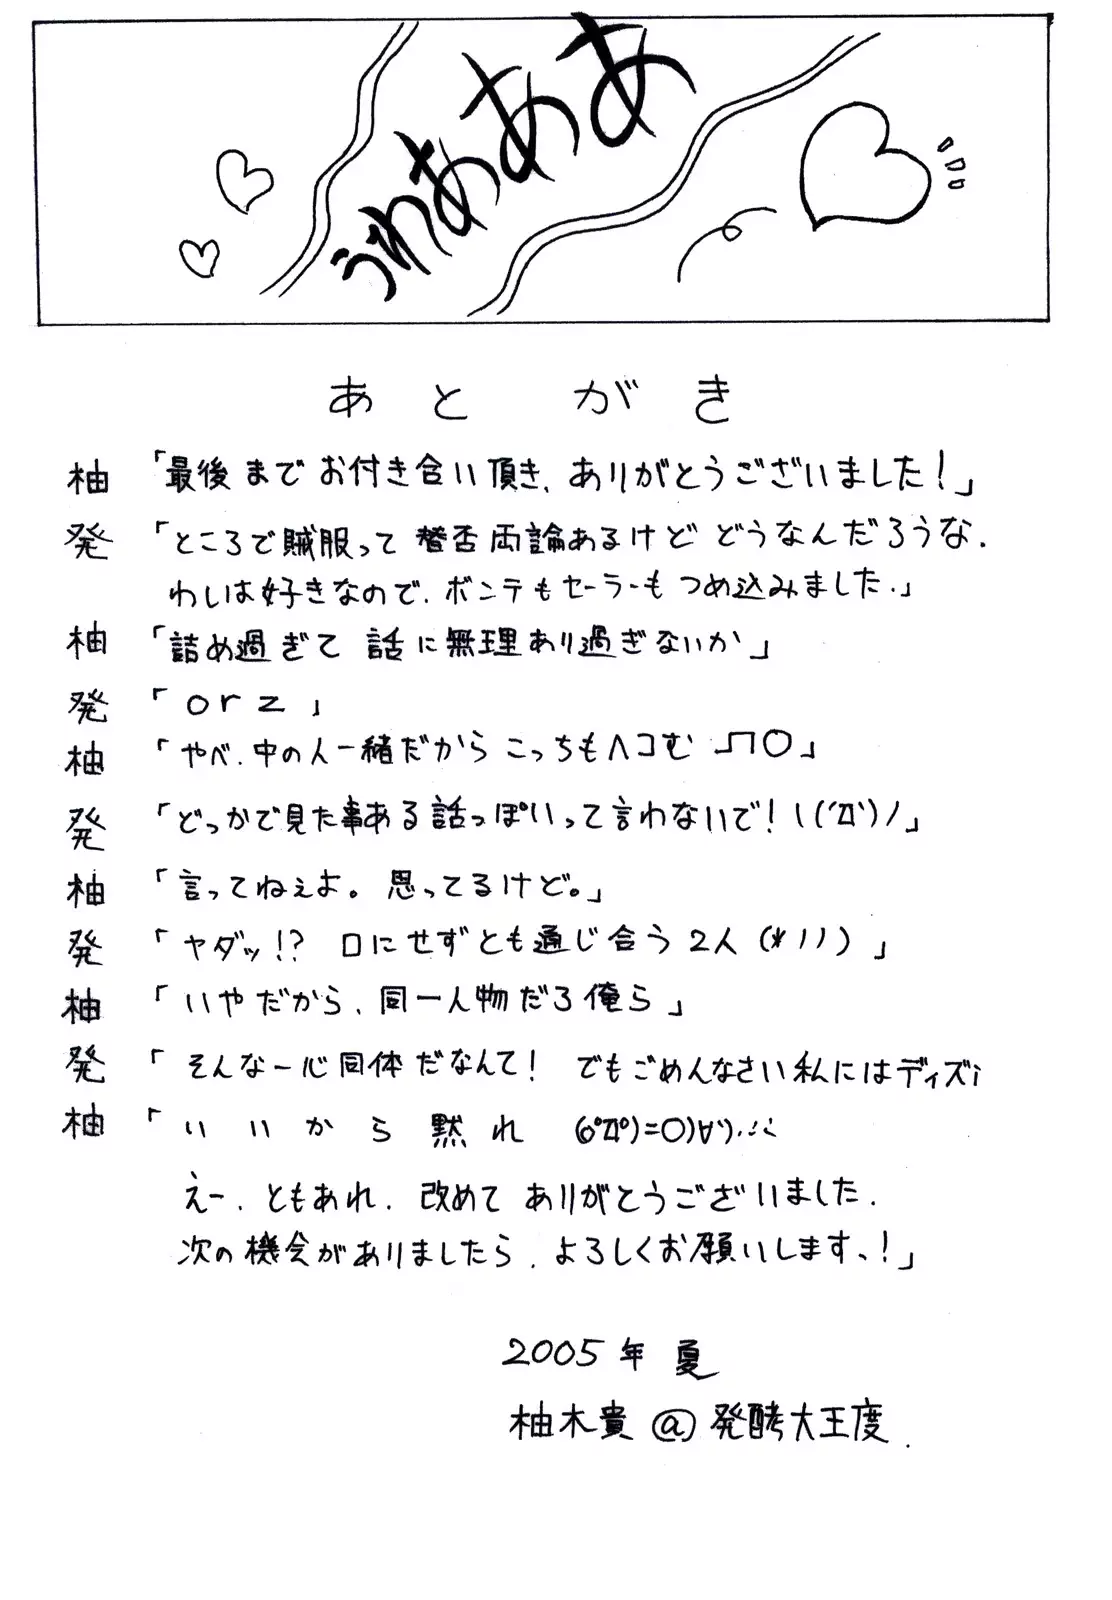 うわぁああ
あとがき
柚「最後までお付き合い頂き、ありがとうございました!」
発「ところで賊服って賛否両論あるけどどうなんだろうな.
わしは好きなので、ボンテもセーラーもつめ込みました.」
柚「詰め過ぎて話に無理あり過ぎないか」
発「orz」
柚「やべ、中の人一緒だからこっちもヘコむ _| ̄|○」
発「どっかで見た事ある話っぽいって言わないで!ヽ(´Д`)ノ」
柚「言ってねぇよ。思ってるけど。」
発「ヤダッ!? 口にせずとも通じ合う2人(*ノノ)」
柚「いやだから、同一人物だろ俺ら」
発「そんな一心同体だなんて! でもごめんなさい私にはディズi
柚「いいから黙れ (o゚Д゚)=○)∀`)
えー、ともあれ、改めてありがとうございました.
次の機会がありましたら、よろしくお願いします、!」
2005年 夏
柚木貴@発酵大王度.